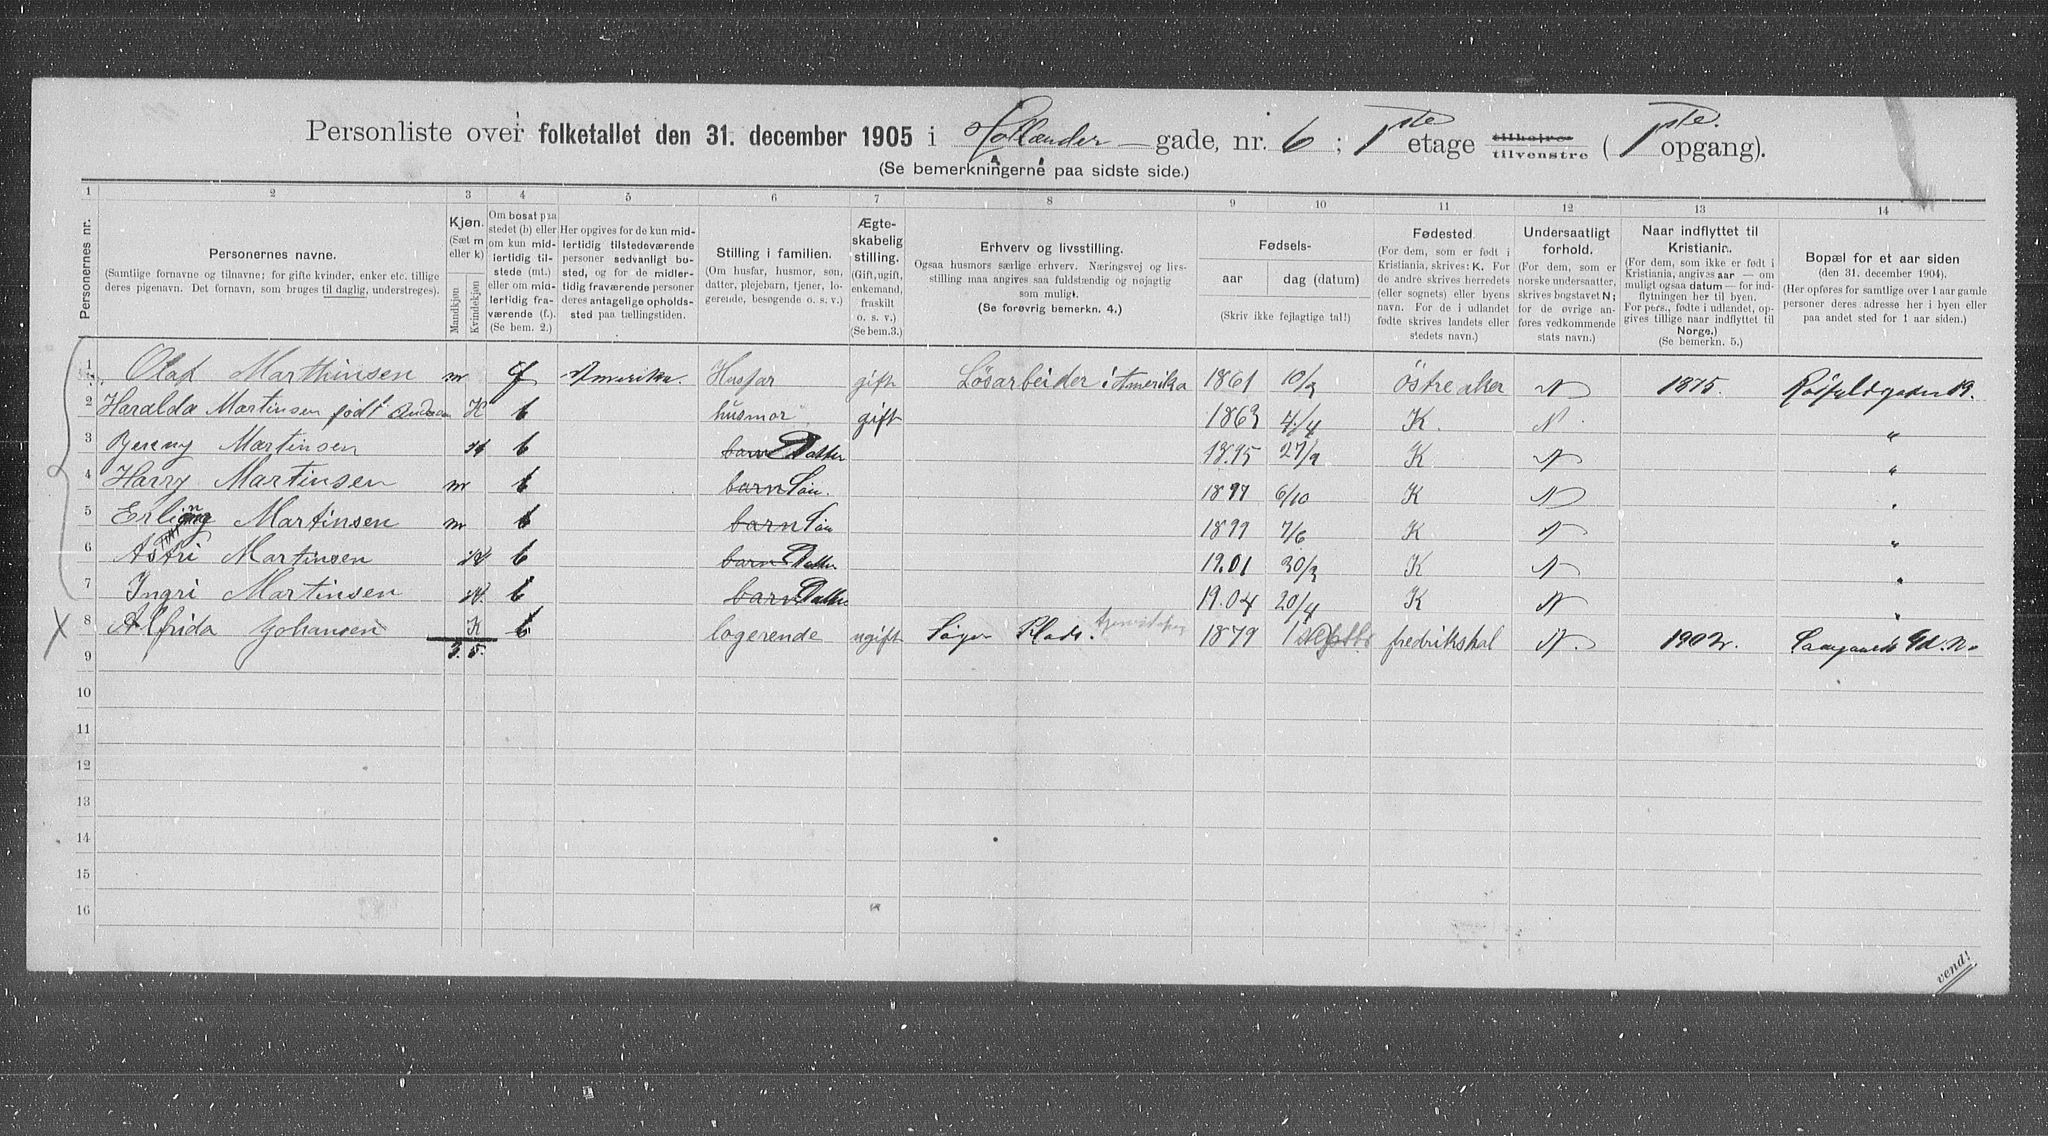 Personliste over folketallet den 31. december 1905 i Hollænder gade, nr. 6 ; 1ste etage tilhøjre tilvenstre ( 1ste. opgang).
(Se bemerkningerne paa sidste side.)
1 2 3 4 5 6 7 8 9 10 11 12 13 14
Personernes nr.
Personernes navne.
(Samtlige fornavne og tilnavne; for gifte kvinder, enker etc. tillige
deres pigenavn. Det fornavn, som bruges til daglig, understreges).
Kjøn.
(Sæt m
eller k)
Mandkjøn
Kvindekjøn
Om bosat paa
stedet (b) eller
om kun mid-
lertidig til-
stede (mt.)
eller om mid-
lertidig fra-
værende (f.).
(Se bem. 2.)
Her opgives for de kun mid-
lertidig tilstedeværende
personer sedvanligt bo-
sted, og for de midler-
tidig fraværende personer
deres antagelige opholds-
sted paa tællingstiden.
Stilling i familien.
(Om husfar, husmor, søn,
datter, plejebarn, tjener, lo-
gerende, besøgende o. s. v.)
Ægte-
skabelig
stilling.
(Gift, ugift,
enkemand,
fraskilt
o. s. v.)
(Se bem.3.)
Erhverv og livsstilling.
Ogsaa husmors særlige erhverv. Næringsvej og livs-
stilling maa angives saa fuldstændig og nøjagtig
som muligt.
(Se forøvrig bemerkn. 4.)
Fødsels-
aar
dag (datum)
(Skriv ikke fejlagtige tal!)
Fødested.
(For dem, som er født i
Kristiania, skrives: K. For
de andre skrives herredets
(eller sognets) eller byens
navn. For de i udlandet
fødte skrives landets eller
stedets navn.)
Undersaatligt
forhold.
(For dem, som er
norske undersaatter,
skrives bogstavet N;
for de øvrige an-
føres vedkommende
stats navn.)
Naar indflyttet til
Kristiania.
(For dem, som ikke er født i
Kristiania, angives aar — om
muligt ogsaa datum — for ind-
flytningen her til byen.
For pers., fødte i udlandet, op-
gives tillige naar indflyttet til
Norge.)
(Se bemerkn. 5.)
Bopæl for et aar siden
(den 31. december 1904).
(Her opføres for samtlige over 1 aar gamle
personer deres adresse her i byen eller
paa andet sted for 1 aar siden.)
1 Olaf Marthinsen m f Amerika. Husfar gift Løsarbeider i Amerika 1861 10/3 Østre aker N 1875. 19.
2 Haralda Martinsen født K b husmor gift 1863 4/4 K. N. "
3 Martinsen K b barn Datter 1895 27/9 K N "
4 Harry Martinsen m b barn Søn. 1897 6/10 K N "
5 Erling Martinsen m b barn Søn 1899 7/6 K N "
6 Astri Martinsen K b barn Datter 1901 30/3 K N "
7 Ingri Martinsen K. b barn Datter 1904 20/4 K N "
X 8 Alfrida Johansen K b logerende ugift Plads. 1879 1 fredrikshal N. 1902.
3. 5.
9
10
11
12
13
14
15
16
vend!